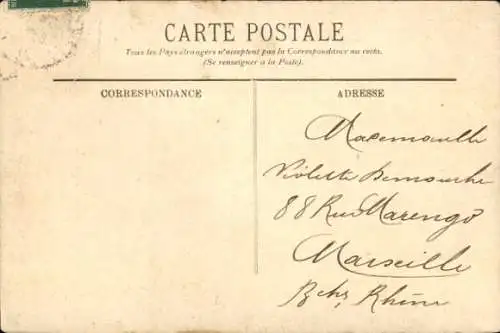 CARTE POSTALE
Tous les Pays étrangers n'acceptent pas la Correspondance au recto.
(Se renseigner à la Poste).
CORRESPONDANCE
ADRESSE
Mademoiselle
Violette
88 Rue Marengo
Marseille
Bches Rhône